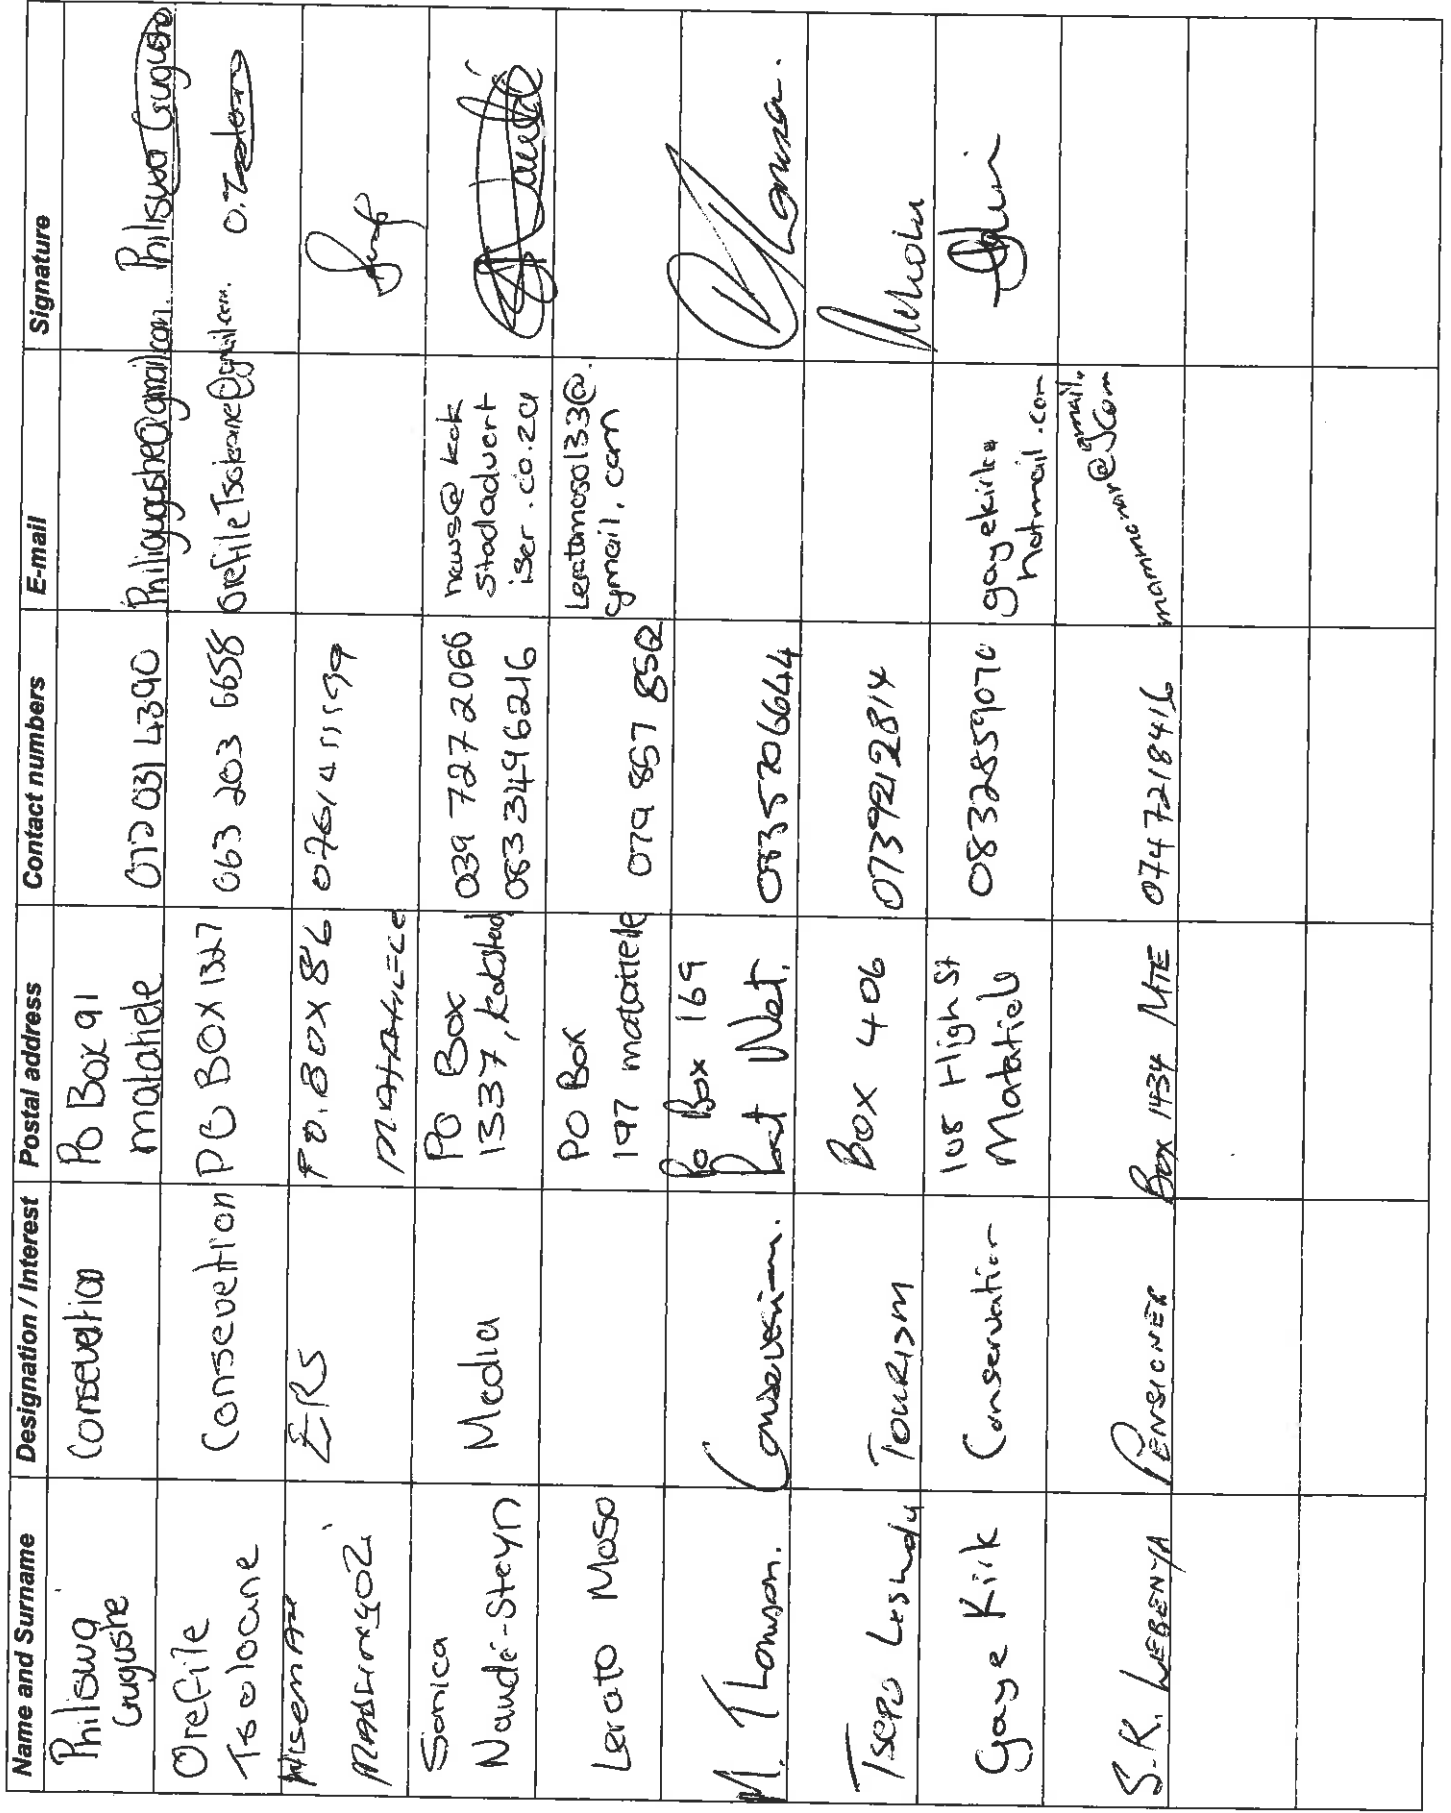 Name and Surname Designation / Interest Postal address Contact numbers E-mail Signature
Philiswa Gugushe Consevetion Po Box 91 matatiele 072 031 4390 Philigugushe@gmail.com. Philiswa Gugushe
Orefile Tsolocane Consevetion PO BOX 1327 063 203 6658 O.Tsolocane
ERS P.O. BOX 86
Sonica Naudé-Steyn Media PO Box 1337, Kokstad 039 727 2066 083 3496216 news@kok stadadvert iser.co.za
Lerato Moso PO Box 197 matatiele 079 857 8502 Leratomoso133@ gmail.com
M. Thomson. Conservation. Po Box 169 Post Net. 0835706644
Tsepo Lesholu TOURISM Box 406 0739212814
Gaye Kirk Conservation 108 High St Matatiele 0832859070 gayekirk@ hotmail.com
S.R. LEBENYA PENSIONER Box 1434 MTE 0747218416 gmail. com